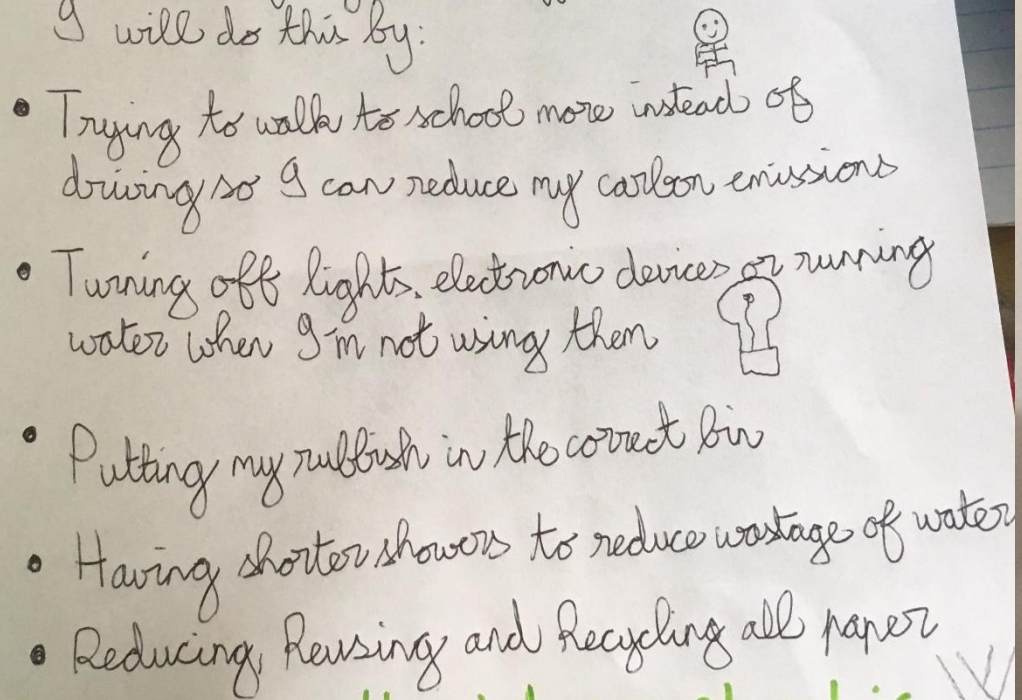 I will do this by:
• Trying to walk to school more instead of
driving so I can reduce my carbon emissions
• Turning off lights, electronic devices or running
water when I'm not using them
• Putting my rubbish in the correct bin
• Having shorter showers to reduce wastage of water
• Reducing, Reusing and Recycling all paper